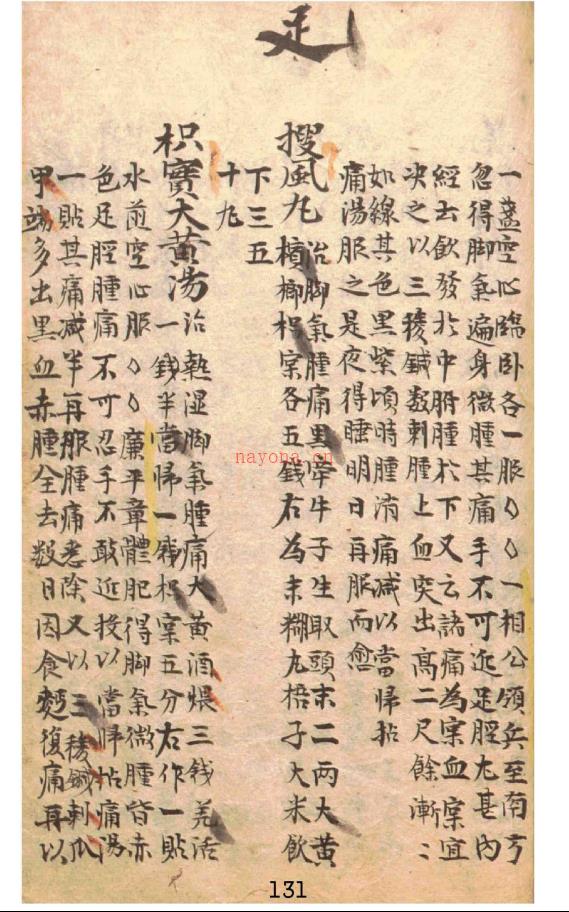 足
一盞空心臨卧各一服〻〻一相公領兵至南方
忽得脚氣遍身微腫其痛手不可近足脛尤甚內
經云飲發於中胕腫於下又云諸痛為實血實宜
决之以三稜鍼數刺腫上血突出高二尺餘漸〻
如線其色黑紫頃時腫消痛减以當歸拈
痛湯服之是夜得睡明日再服而愈
搜風丸 治脚氣腫痛黑牽牛子生取頭末二兩大黃
檳榔枳实各五錢右為末糊丸梧子大米飲
下三五
十丸
枳實大黃湯 治熱湿脚氣腫痛大黃酒煨三錢羌活
一錢半當帰一錢枳实五分右作一貼
水煎空心服〻〻廉平章體肥得脚氣微腫皆赤
色足脛腫痛不可忍手不敢近投以當帰拈痛湯
一貼其痛减半再服腫痛悉除又以三稜鍼刺爪
甲端多出黑血赤腫全去数日因食麪復痛再以
nayona.cn
131